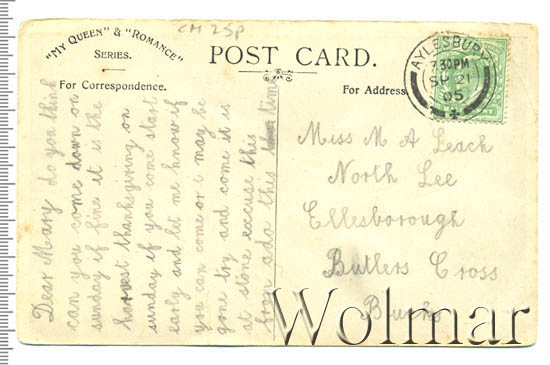 CM 25p
"MY QUEEN" & "ROMANCE"
SERIES.
POST CARD.
For Correspondence.
For Address
AYLESBURY
7.30PM
SP 21
05
Dear Mary do you think
can you come down on
sunday if fine it is the
harvest thanksgiving on
sunday if you come start
early and let me know if
you can come or i may be
gone try and come it is
at stone excuse this
from ada this time
Miss M A Leach
North Lee
Ellesborough
Butlers Cross
Bucks
Wolmar